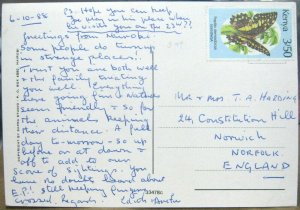 6-10-88
PS. Hope you can keep
Jo Ann in his place when
he visits you on the 23rd!!
Greetings from Nairobi.
Some people do turn up
in strange places!
Trust you are both well
& the family treating
you well. Everything
here going fine. Natives
seem friendly & so far
the animals keeping
their distance. A full
day to-morrow - so up
before or at dawn &
off to add to our
score of sightings. You
have no doubt heard about
E.P.! Still keeping fingers
crossed. Regards
Kenya
3/50
Mr & Mrs T. A. HARDING
24, Constitution Hill
Norwich
NORFOLK.
ENGLAND